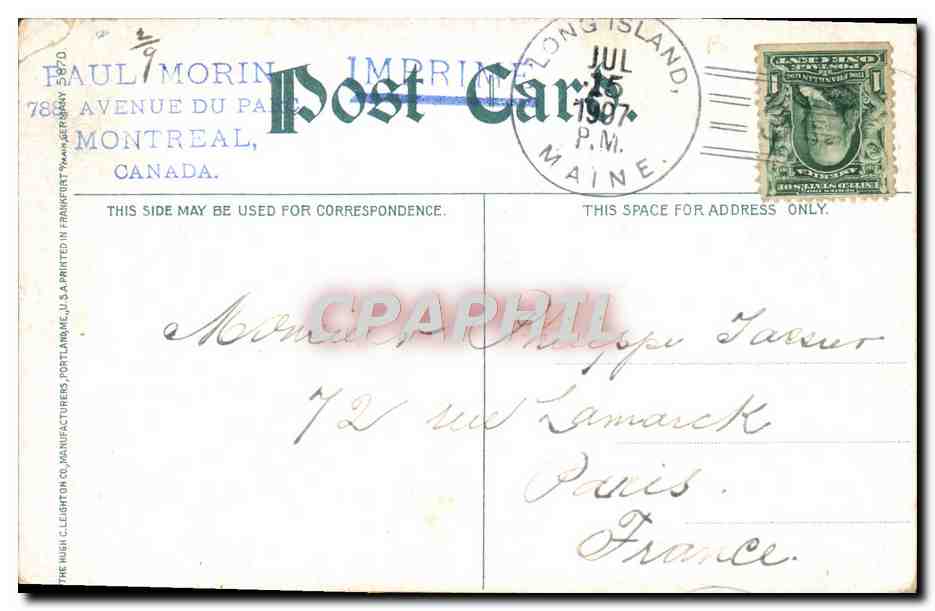 2/9
PAUL MORIN
IMPRIMÉ
AVENUE DU PARC
MONTREAL,
CANADA.
Post Card.
LONG ISLAND,
JUL
1907
P.M.
MAINE.
ONE CENT
1 1
UNITED STATES OF
AMERICA
THIS SIDE MAY BE USED FOR CORRESPONDENCE.
THIS SPACE FOR ADDRESS ONLY.
CPAPHIL
Monsieur Philippe
72 rue Lamarck
Paris.
France.
THE HUGH C. LEIGHTON CO., MANUFACTURERS, PORTLAND, ME., U.S.A. PRINTED IN FRANKFURT o/MAIN, GERMANY 5870